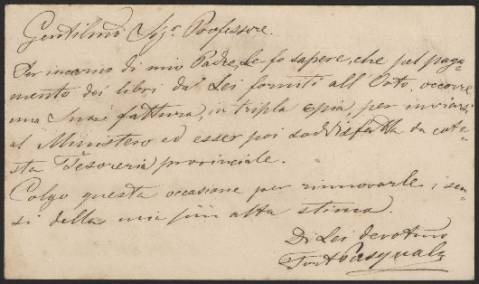 Gentilmo Sigr Professore.
Per incarico di mio Padre, Le fo sapere, che pel paga-
mento dei libri da Lei forniti all'Orto, occorre
una Sua fattura, in tripla copia, per inviarsi
al Ministero ed esser poi soddisfatta da cote-
sta Tesoreria provinciale.
Colgo questa occasione per rinnovarle i sen-
si della mia più alta stima.
Di Lei devotmo
Pasquale